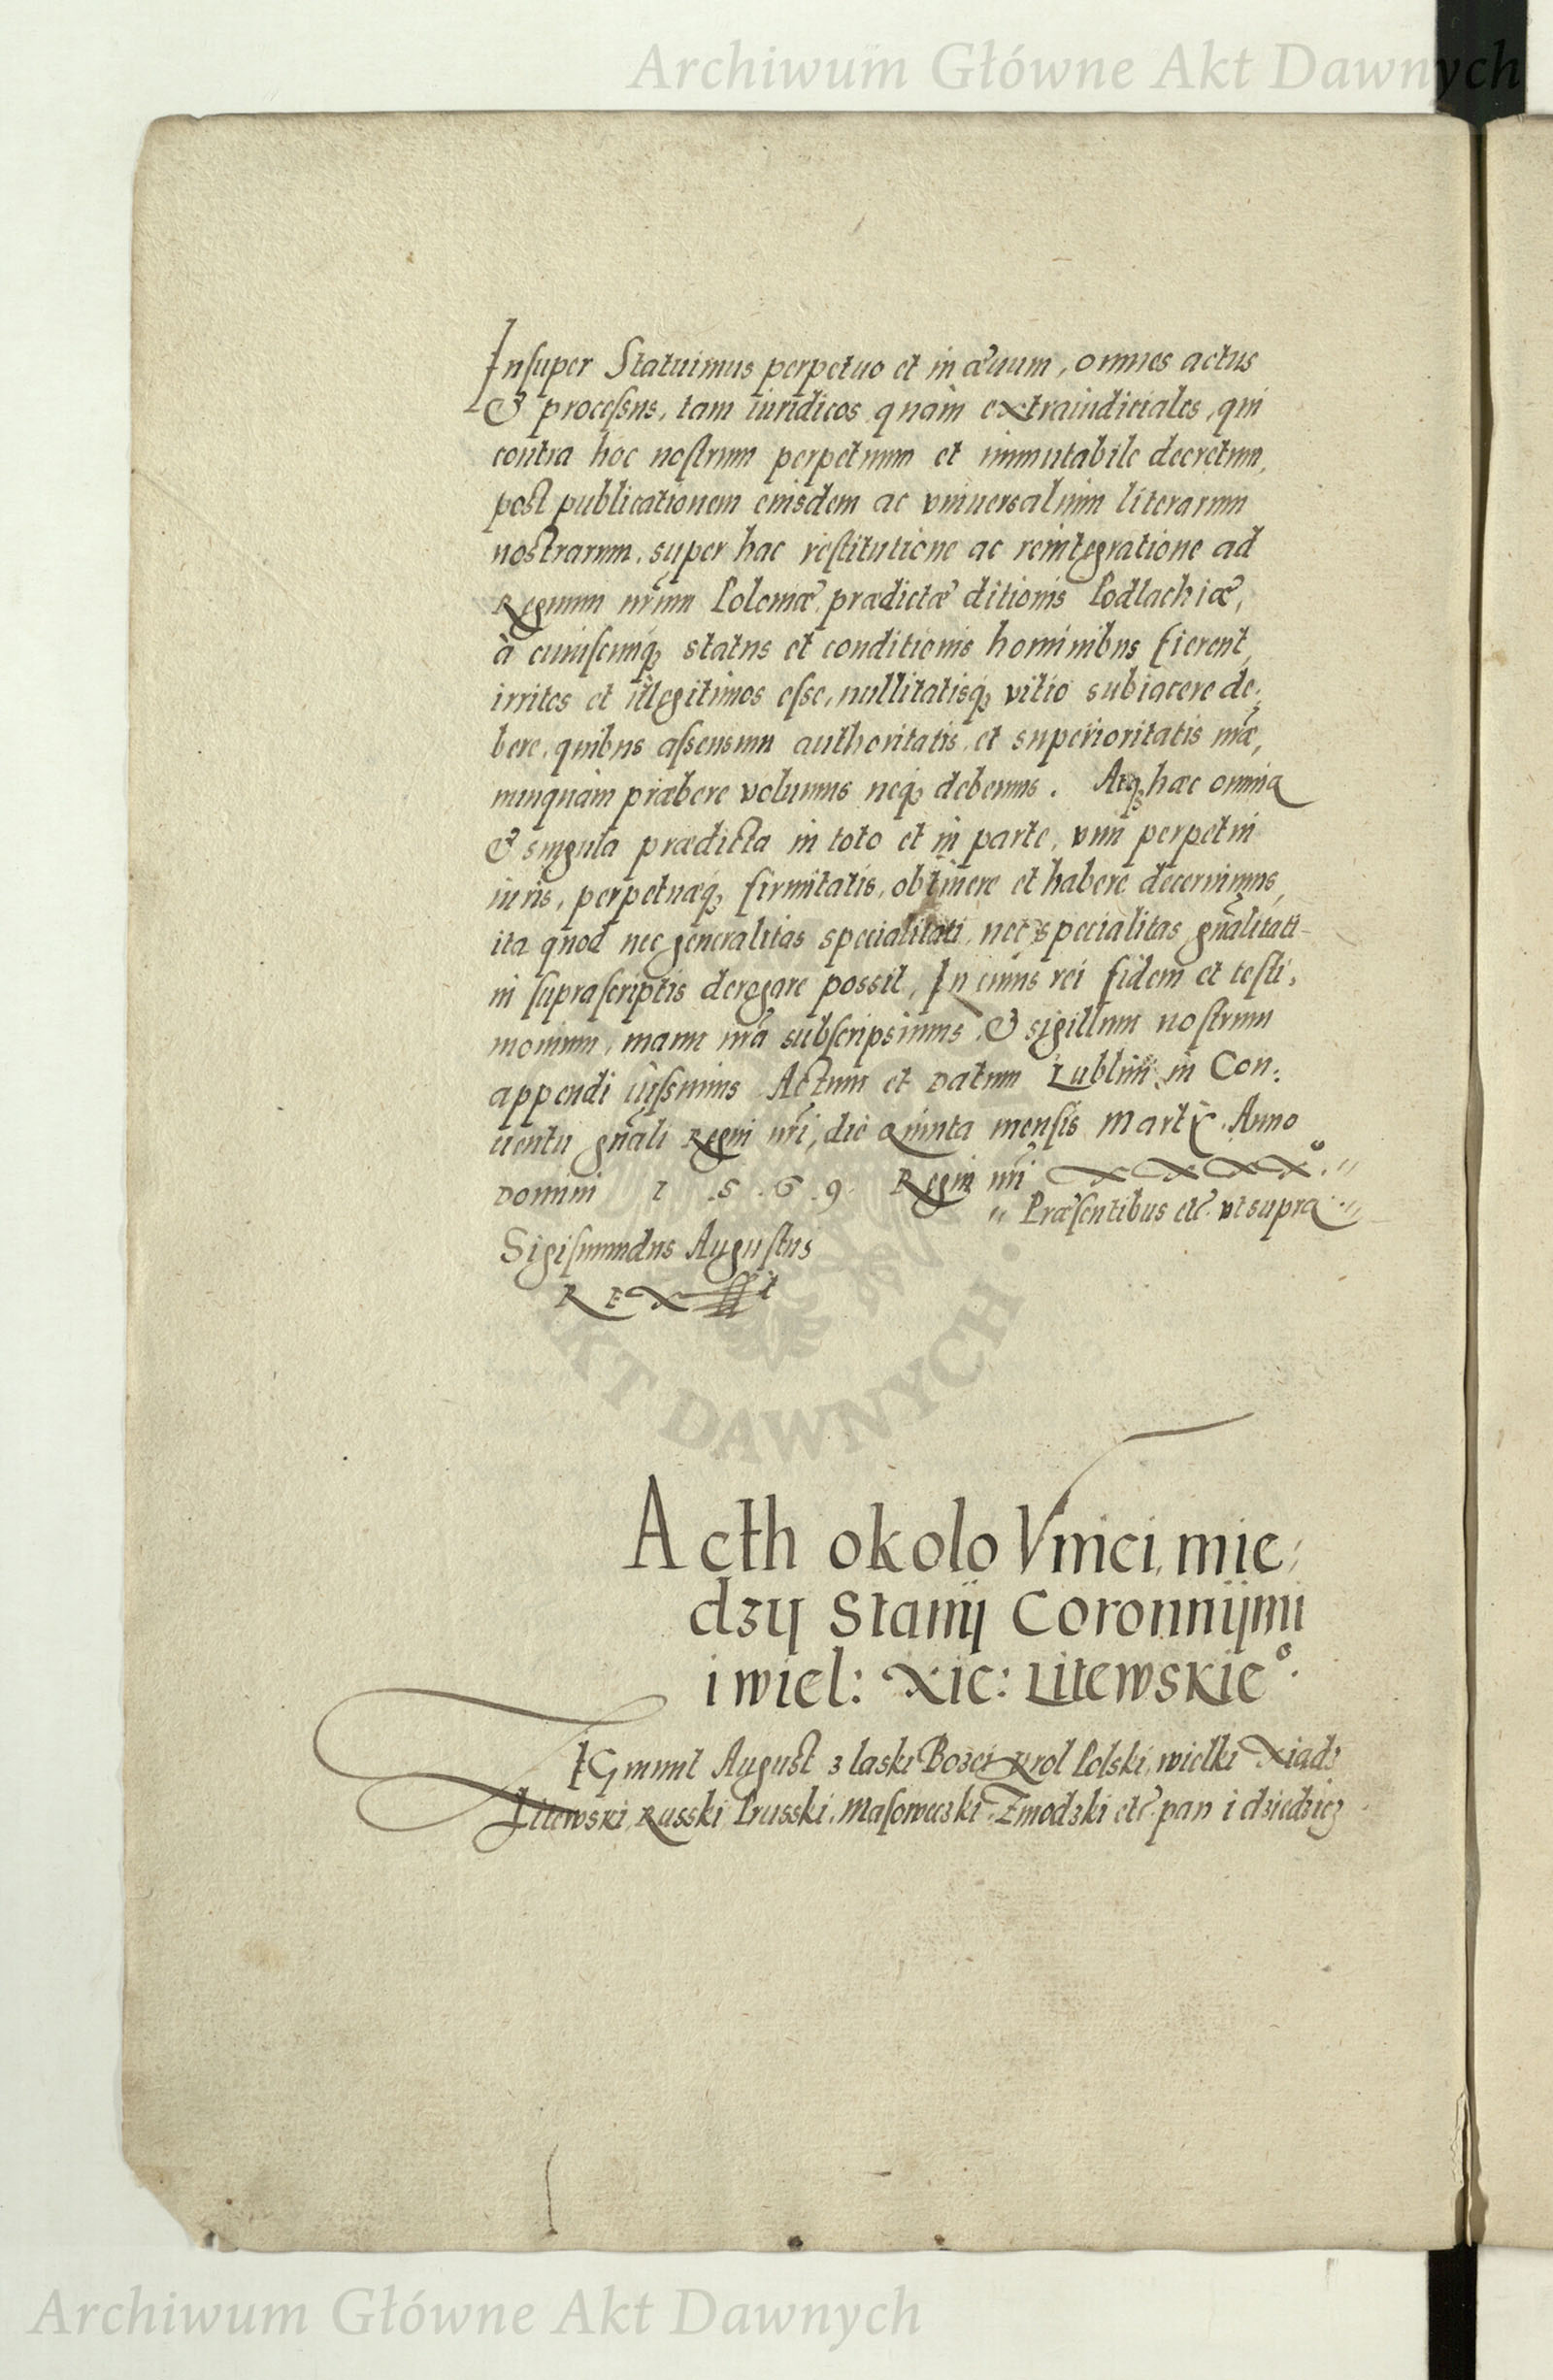 Archiwum Główne Akt Dawnych
Insuper Statuimus perpetuo et in æuum, omnes actus
& processus, tam iuridicos quàm extraiudiciales, qui
contra hoc nostrum perpetuum et immutabile decretum,
post publicationem eiusdem ac vniuersalium literarum
nostrarum, super hac restitutione ac reintegratione ad
Regnum nrum Poloniæ, prædictæ ditionis Podlachiæ,
à cuiuscunq; status et conditionis hominibus fierent,
irritos et illegitimos esse, nullitatisq; vitio subiacere de:
bere, quibus assensum authoritatis, et superioritatis nræ,
nunquàm præbere volumus neq; debemus. Atq; hæc omnia
& singula prædicta in toto et in parte, vim perpetui
iuris, perpetuæq; firmitatis, obtinere et habere decernimus,
ita quod nec generalitas specialitati, nec specialitas gnalitati
in suprascriptis derogare possit, In cuius rei fidem et testi,
monium, manu nra subscripsimus, & sigillum nostrum
appendi iussimus. Actum et Datum Lublini in Con:
uentu gnali Regni nri, die Quinta mensis Martij. Anno
Domini 1.5.6.9. Regni nri XXXX°.
Præsentibus etc. vt supra
Sigismundus Augustus
REX sst
AKT DAWNYCH
Acth okolo Vniei, mie,
dzy Stany Coronnymi
i wiel: Xie: Litewskie°.
ZIGmunt August z laski Bozei Krol Polski, wielki Xiadz
Litewski, Russki Prusski, Masowieczki, Zmodzki etc. pan i dziedzicz
Archiwum Główne Akt Dawnych